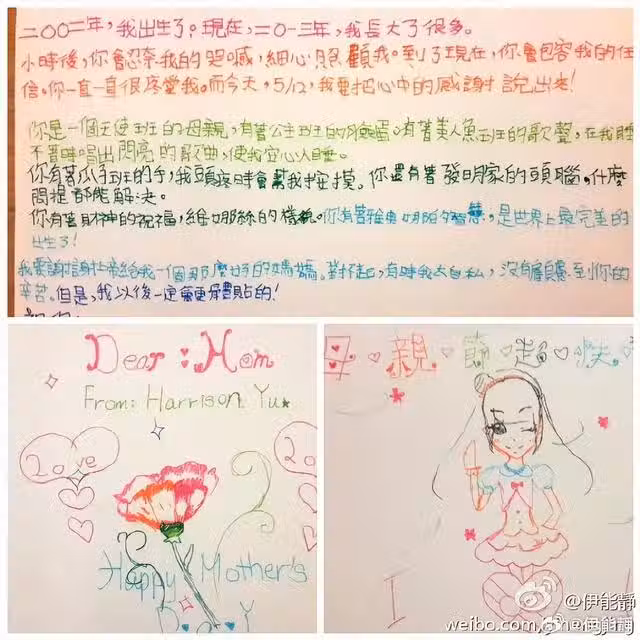 二00二年，我出生了。現在，二0一三年，我長大了很多。
小時後，你會忍奈我的哭喊，細心照顧我。到了現在，你會包容我的任
信。你一直一直很疼愛我。而今天，5/12，我要把心中的感謝說出來！
你是一個天使班的母親，有著公主班的臉蛋。有著美人魚班的歌聲，在我睡
不著時唱出閃亮的歌曲，使我安心入睡。
你有著爪子班的手，我頭疼時會幫我按摸。你還有著發明家的頭腦，什麼
問提都能解決。
你有著財神的祝福，維娜絲的樣貌。你有著雅典娜的智慧，是世界上最完美的
出生了！
我要謝謝社帝給我一個那麼好的媽媽。對不起，有時我太自私，沒有顧慮到你的
辛苦。但是，我以後一定會更體貼的！
Dear: Mom
From: Harrison Yu
Love
Happy Mother's
Day
母親節超快
I
@伊能靜
weibo.com